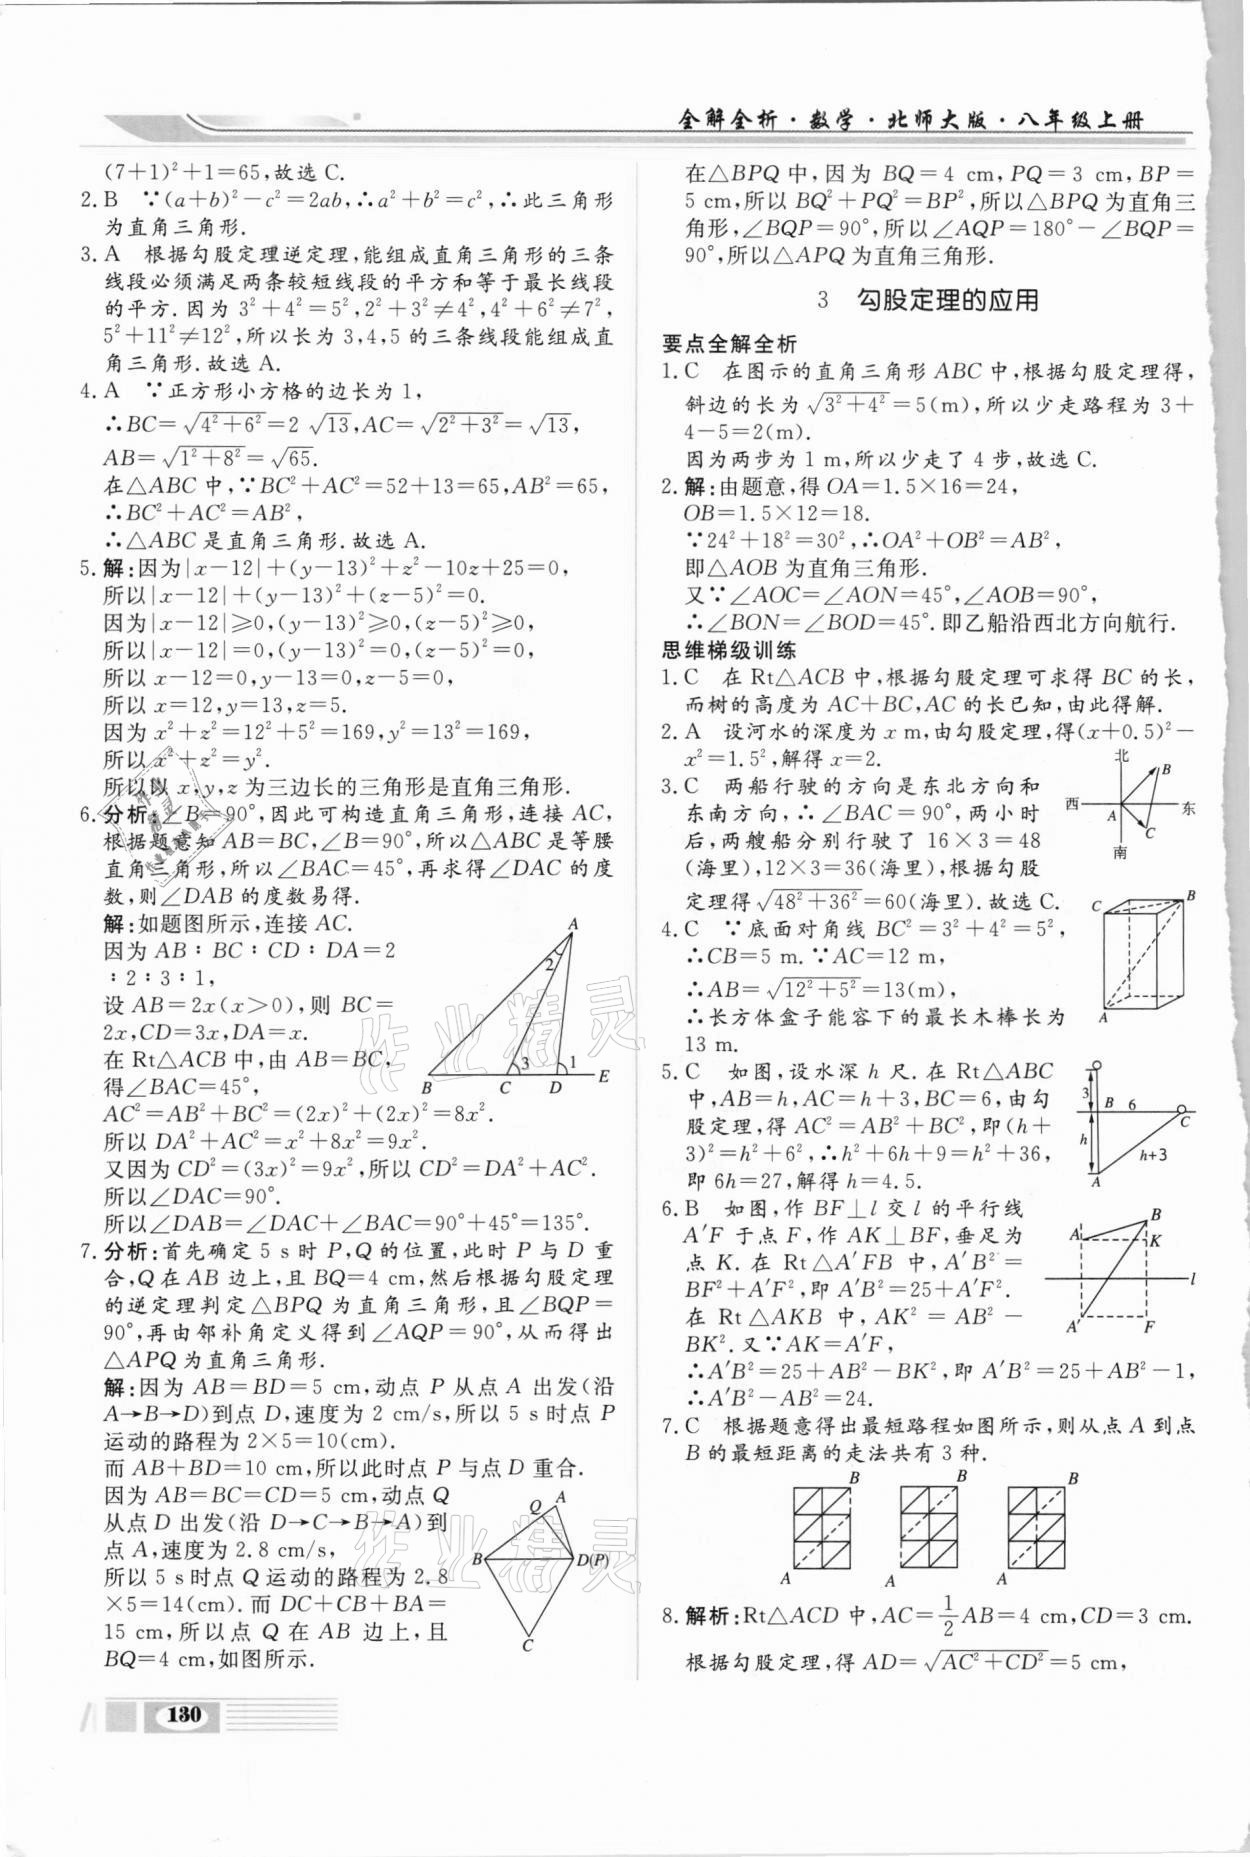 全解全析·数学·北师大版·八年级上册
(7+1)²+1=65,故选 C.
2. B ∵(a+b)²-c²=2ab,∴a²+b²=c²,∴此三角形
为直角三角形.
3. A 根据勾股定理逆定理,能组成直角三角形的三条
线段必须满足两条较短线段的平方和等于最长线段
的平方.因为 3²+4²=5²,2²+3²≠4²,4²+6²≠7²,
5²+11²≠12²,所以长为 3,4,5 的三条线段能组成直
角三角形.故选 A.
4. A ∵正方形小方格的边长为 1,
∴BC=√(4²+6²)=2√13,AC=√(2²+3²)=√13,
AB=√(1²+8²)=√65.
在△ABC 中,∵BC²+AC²=52+13=65,AB²=65,
∴BC²+AC²=AB²,
∴△ABC 是直角三角形.故选 A.
5. 解:因为|x-12|+(y-13)²+z²-10z+25=0,
所以|x-12|+(y-13)²+(z-5)²=0.
因为|x-12|≥0,(y-13)²≥0,(z-5)²≥0,
所以|x-12|=0,(y-13)²=0,(z-5)²=0,
所以 x-12=0,y-13=0,z-5=0,
所以 x=12,y=13,z=5.
因为 x²+z²=12²+5²=169,y²=13²=169,
所以 x²+z²=y².
所以以 x,y,z 为三边长的三角形是直角三角形.
6. 分析:∠B=90°,因此可构造直角三角形,连接 AC,
根据题意知 AB=BC,∠B=90°,所以△ABC 是等腰
直角三角形,所以∠BAC=45°,再求得∠DAC 的度
数,则∠DAB 的度数易得.
解:如题图所示,连接 AC.
因为 AB∶BC∶CD∶DA=2
∶2∶3∶1,
设 AB=2x(x>0),则 BC=
2x,CD=3x,DA=x.
在 Rt△ACB 中,由 AB=BC,
得∠BAC=45°,
A
2
3
1
B C D E
AC²=AB²+BC²=(2x)²+(2x)²=8x².
所以 DA²+AC²=x²+8x²=9x².
又因为 CD²=(3x)²=9x²,所以 CD²=DA²+AC².
所以∠DAC=90°.
所以∠DAB=∠DAC+∠BAC=90°+45°=135°.
7. 分析:首先确定 5 s 时 P,Q 的位置,此时 P 与 D 重
合,Q 在 AB 边上,且 BQ=4 cm,然后根据勾股定理
的逆定理判定△BPQ 为直角三角形,且∠BQP=
90°,再由邻补角定义得到∠AQP=90°,从而得出
△APQ 为直角三角形.
解:因为 AB=BD=5 cm,动点 P 从点 A 出发(沿
A→B→D)到点 D,速度为 2 cm/s,所以 5 s 时点 P
运动的路程为 2×5=10(cm).
而 AB+BD=10 cm,所以此时点 P 与点 D 重合.
因为 AB=BC=CD=5 cm,动点 Q
从点 D 出发(沿 D→C→B→A)到
点 A,速度为 2.8 cm/s,
所以 5 s 时点 Q 运动的路程为 2.8
×5=14(cm).而 DC+CB+BA=
15 cm,所以点 Q 在 AB 边上,且
BQ=4 cm,如图所示.
Q A
B D(P)
C
在△BPQ 中,因为 BQ=4 cm,PQ=3 cm,BP=
5 cm,所以 BQ²+PQ²=BP²,所以△BPQ 为直角三
角形,∠BQP=90°,所以∠AQP=180°-∠BQP=
90°,所以△APQ 为直角三角形.
3 勾股定理的应用
要点全解全析
1. C 在图示的直角三角形 ABC 中,根据勾股定理得,
斜边的长为√(3²+4²)=5(m),所以少走路程为 3+
4-5=2(m).
因为两步为 1 m,所以少走了 4 步,故选 C.
2. 解:由题意,得 OA=1.5×16=24,
OB=1.5×12=18.
∵24²+18²=30²,∴OA²+OB²=AB²,
即△AOB 为直角三角形.
又∵∠AOC=∠AON=45°,∠AOB=90°,
∴∠BON=∠BOD=45°.即乙船沿西北方向航行.
思维梯级训练
1. C 在 Rt△ACB 中,根据勾股定理可求得 BC 的长,
而树的高度为 AC+BC,AC 的长已知,由此得解.
2. A 设河水的深度为 x m,由勾股定理,得(x+0.5)²-
x²=1.5²,解得 x=2.
3. C 两船行驶的方向是东北方向和
东南方向,∴∠BAC=90°,两小时
后,两艘船分别行驶了 16×3=48
(海里),12×3=36(海里),根据勾股
定理得√(48²+36²)=60(海里).故选 C.
北
B
西 东
A
C
南
4. C ∵底面对角线 BC²=3²+4²=5²,
∴CB=5 m.∵AC=12 m,
∴AB=√(12²+5²)=13(m),
∴长方体盒子能容下的最长木棒长为
13 m.
B
C
A
5. C 如图,设水深 h 尺.在 Rt△ABC
中,AB=h,AC=h+3,BC=6,由勾
股定理,得 AC²=AB²+BC²,即(h+
3)²=h²+6²,∴h²+6h+9=h²+36,
即 6h=27,解得 h=4.5.
3
B 6
C
h
h+3
A
6. B 如图,作 BF⊥l 交 l 的平行线
A′F 于点 F,作 AK⊥BF,垂足为
点 K.在 Rt△A′FB 中,A′B²=
BF²+A′F²,即 A′B²=25+A′F².
在 Rt△AKB 中,AK²=AB²-
BK².又∵AK=A′F,
∴A′B²=25+AB²-BK²,即 A′B²=25+AB²-1,
∴A′B²-AB²=24.
B
A K
l
A′ F
7. C 根据题意得出最短路程如图所示,则从点 A 到点
B 的最短距离的走法共有 3 种.
B B B
A A A
8. 解析:Rt△ACD 中,AC=1/2AB=4 cm,CD=3 cm.
根据勾股定理,得 AD=√(AC²+CD²)=5 cm,
130
作业精灵
作业精灵